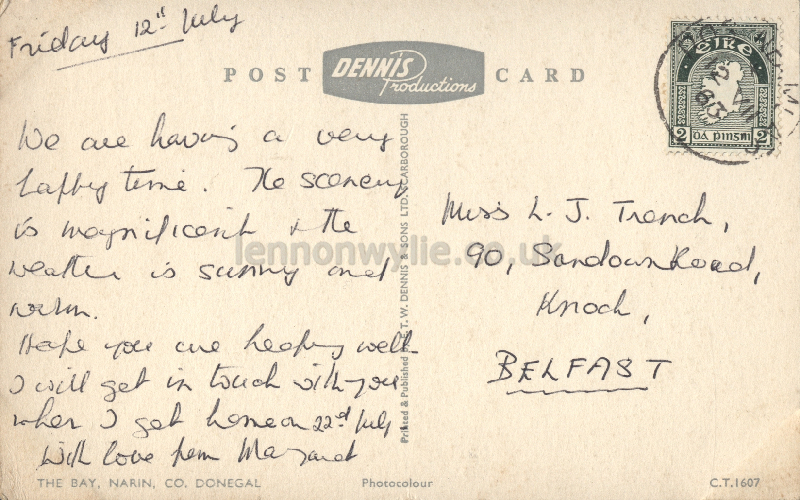 Friday 12th July
POST DENNIS Productions CARD
ÉIRE
2 DÁ PINGIN 2
We are having a very
happy time. The scenery
is magnificent & the
weather is sunny and
warm.
Hope you are keeping well.
I will get in touch with you
when I get home on 22nd July
With love from Margaret
Miss L. J. Trench,
90, Sandown Road,
Knock,
BELFAST
Printed & Published by E. T. W. DENNIS & SONS LTD. SCARBOROUGH
lennonwylie.co.uk
THE BAY, NARIN, CO. DONEGAL Photocolour C.T.1607